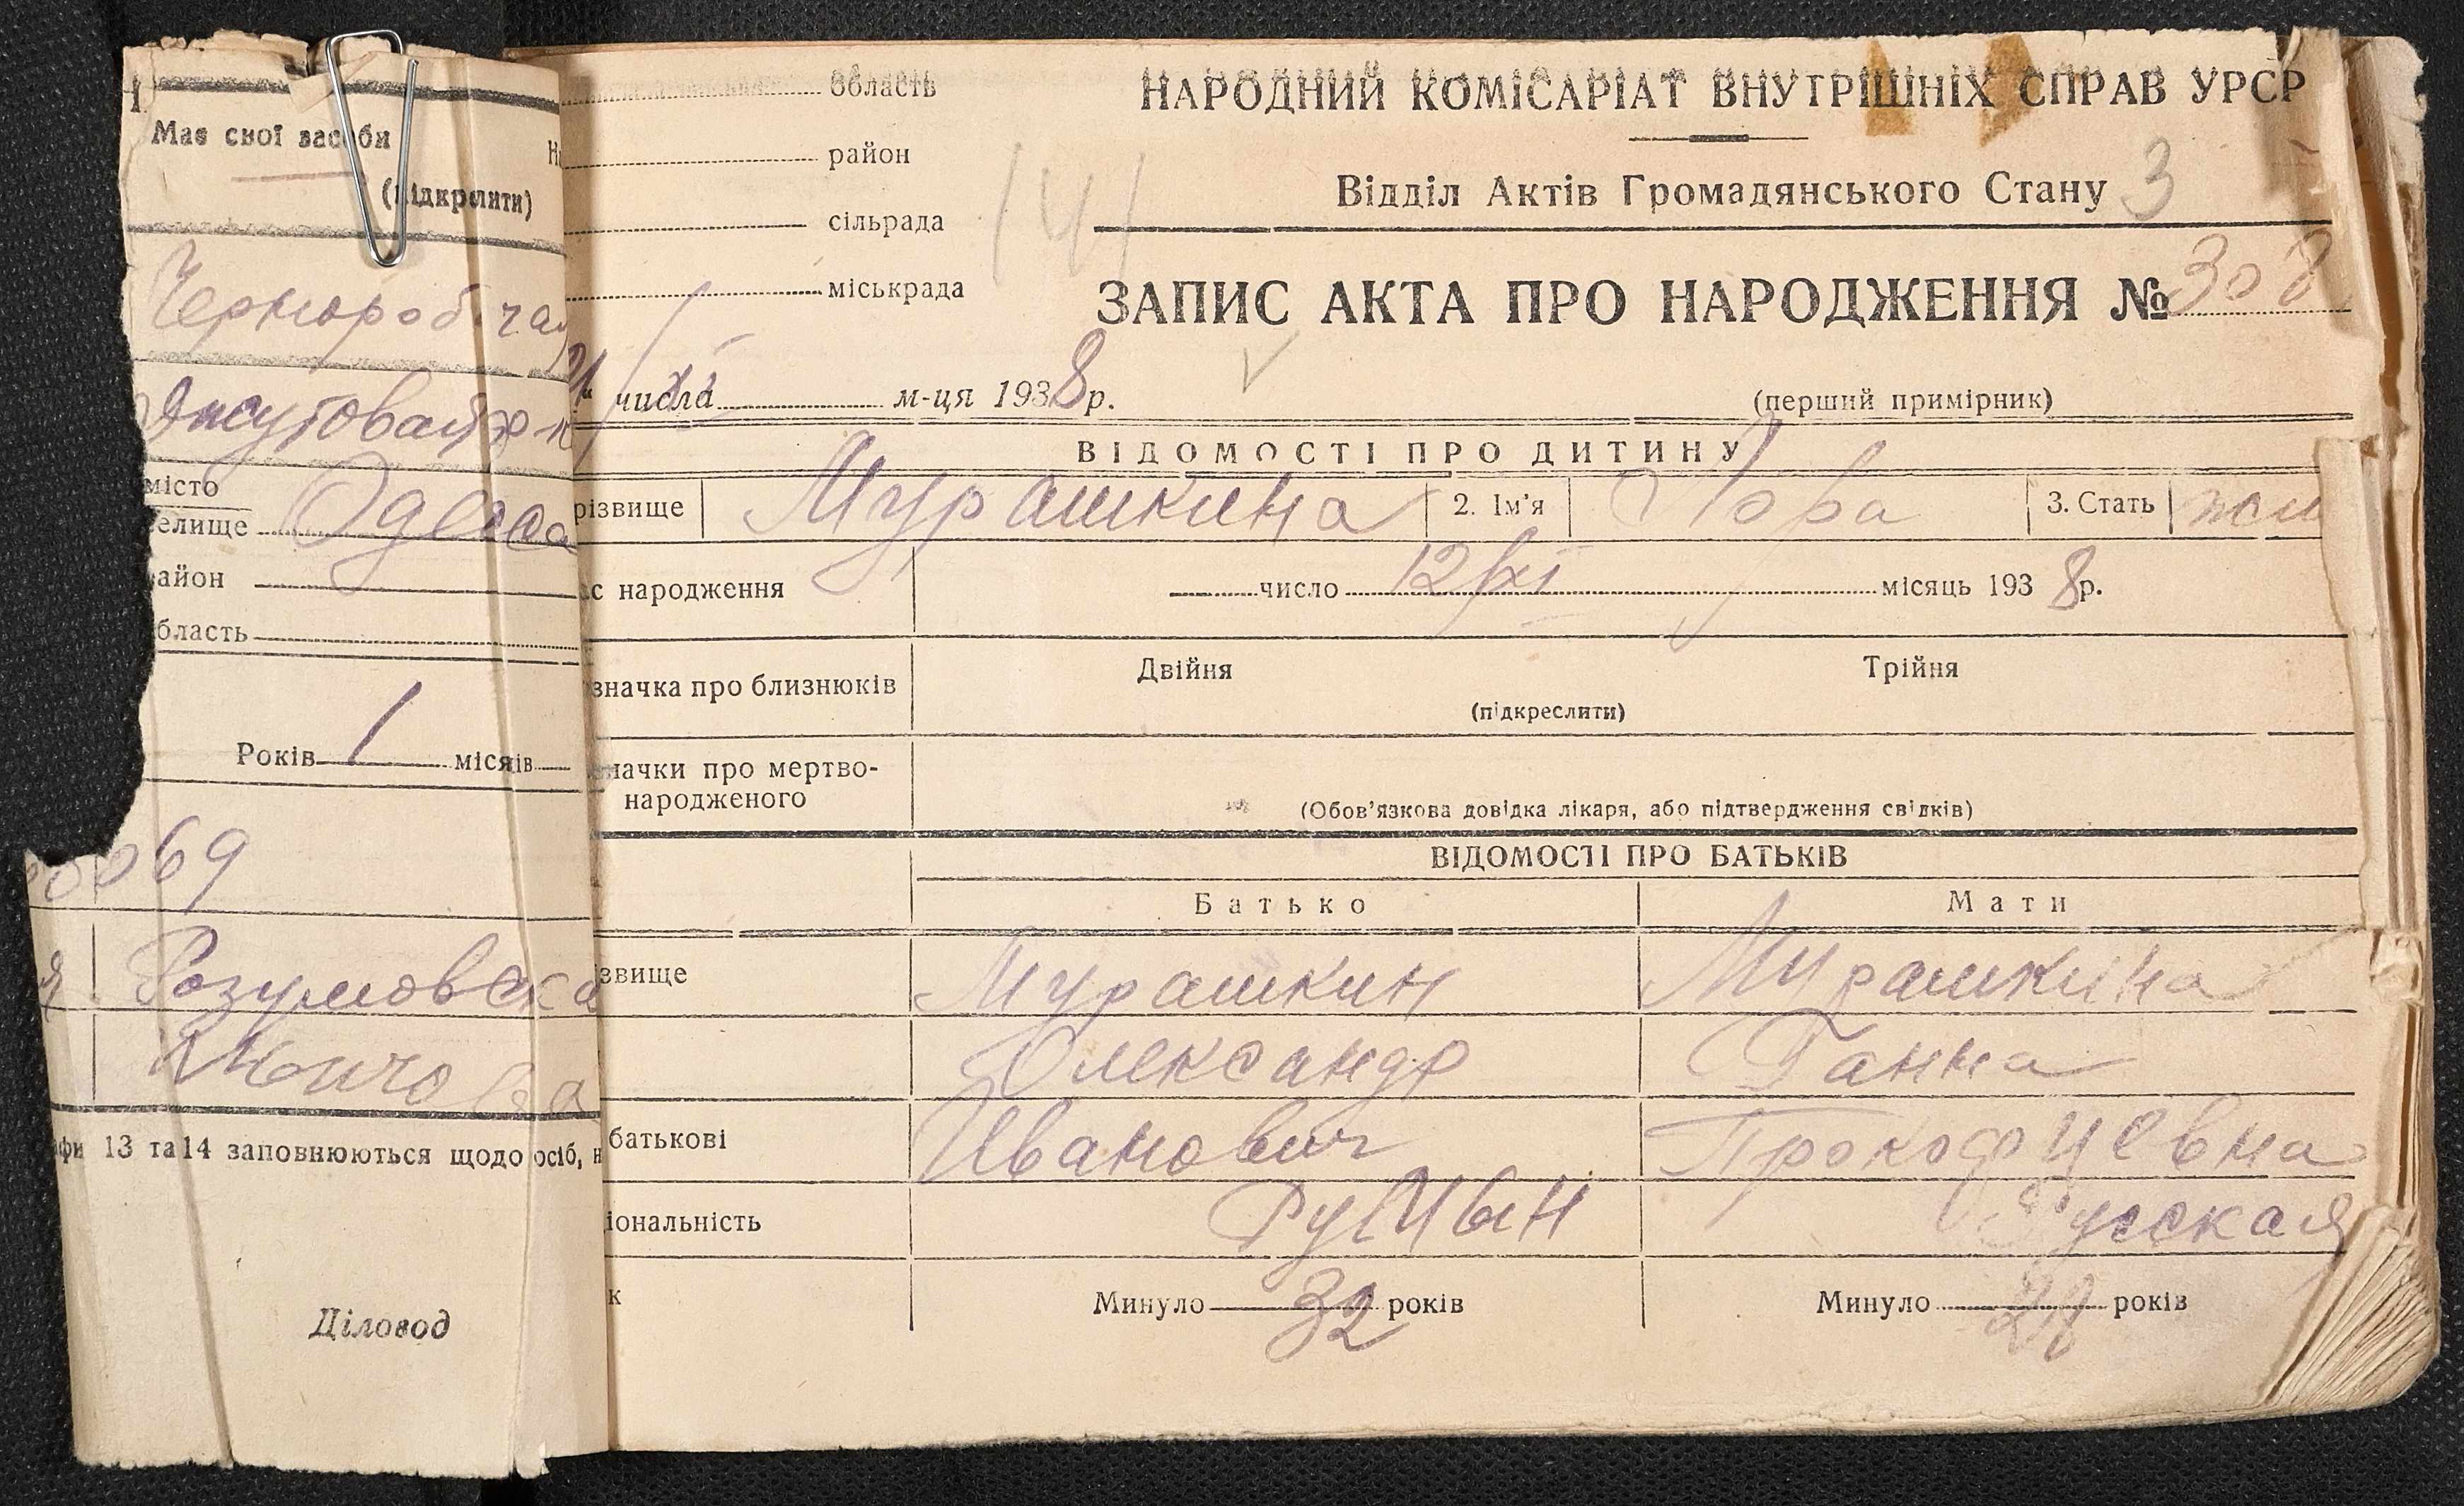 Має свої засоби
(підкрелити)
Чернороб.
місто
елище Одеса
айон
бласть
Років 1 місяів
069
Розумовска
фи 13 та 14 заповнюються щодо осіб, н
Діловод
область
район
сільрада
міськрада
141
НАРОДНИЙ КОМІСАРІАТ ВНУТРІШНІХ СПРАВ УРСР
Відділ Актів Громадянського Стану 3
ЗАПИС АКТА ПРО НАРОДЖЕННЯ № 308
21 числа XI м-ця 1938 р.
(перший примірник)
ВІДОМОСТІ ПРО ДИТИНУ
різвище Мурашкина 2. Ім'я Нора 3. Стать жен
с народження число 12/XI місяць 1938 р.
значка про близнюків Двійня Трійня
(підкреслити)
значки про мертво-
народженого
(Обов'язкова довідка лікаря, або підтвердження свідків)
ВІДОМОСТІ ПРО БАТЬКІВ
Батько Мати
звище Мурашкин Мурашкина
Олександр Ганна
батькові Иванович Прокофиевна
іональність Румын Русская
к Минуло 32 років Минуло 28 років